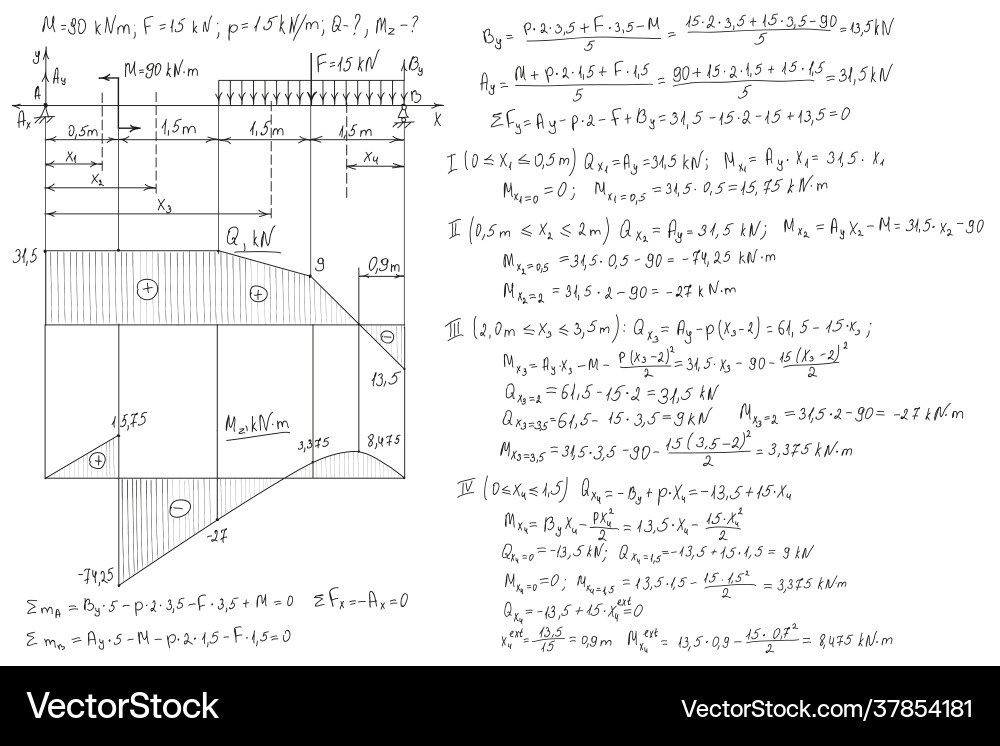 M=90 kNm; F=15 kN; p=15kN/m; Q-?, Mz-?
y
Ay
M=90 kN·m
F=15 kN
By
A
B
Ax
X
0,5m
1,5m
1,5m
1,5m
X₁
X₂
X₃
X₄
Q, kN
31,5
9
0,9m
+
+
−
13,5
15,75
Mz, kN·m
3,375
8,475
+
−
-27
-74,25
Σm_A = By·5-p·2·3,5-F·3,5+M=0   ΣFx=-Ax=0
Σm_B = Ay·5-M-p·2·1,5-F·1,5=0
By = (p·2·3,5+F·3,5-M)/5 = (15·2·3,5+15·3,5-90)/5 = 13,5kN
Ay = (M+p·2·1,5+F·1,5)/5 = (90+15·2·1,5+15·1,5)/5 = 31,5kN
ΣFy = Ay-p·2-F+By=31,5-15·2-15+13,5=0
I (0≤X₁≤0,5m) Qx₁=Ay=31,5 kN; Mx₁= Ay·X₁= 31,5·x₁
Mx₁=0 =0; Mx₁=0,5 =31,5·0,5=15,75 kN·m
II (0,5m ≤ X₂ ≤ 2m) Qx₂ = Ay=31,5 kN; Mx₂ = AyX₂-M=31,5·x₂-90
Mx₂=0,5 =31,5·0,5-90= -74,25 kN·m
Mx₂=2 = 31,5·2-90=-27 kN·m
III (2,0m ≤X₃ ≤ 3,5m): Qx₃= Ay-p(X₃-2)=61,5-15·x₃;
Mx₃=Ay·X₃-M- p(X₃-2)²/2 =31,5·x₃-90- 15(X₃-2)²/2
Qx₃=2 =61,5-15·2=31,5 kN
Qx₃=3,5=61,5- 15·3,5=9kN   Mx₃=2 =31,5·2-90= -27 kN·m
Mx₃=3,5 = 31,5·3,5-90- 15(3,5-2)²/2 = 3,375kN·m
IV (0≤X₄≤1,5) Qx₄=-By+p·X₄=-13,5+15·X₄
Mx₄= ByX₄- pX₄²/2 =13,5·X₄- 15·X₄²/2
Qx₄=0 =-13,5kN; Qx₄=1,5=-13,5+15·1,5= 9kN
Mx₄=0 =0; Mx₄=1,5 =13,5·1,5- 15·1,5²/2 = 3,375kNm
Qx₄=-13,5+15·x₄ᵉˣᵗ=0
x₄ᵉˣᵗ= 13,5/15 =0,9m   Mx₄ᵉˣᵗ = 13,5·0,9- 15·0,7²/2 = 8,475kN·m
VectorStock®
VectorStock.com/37854181